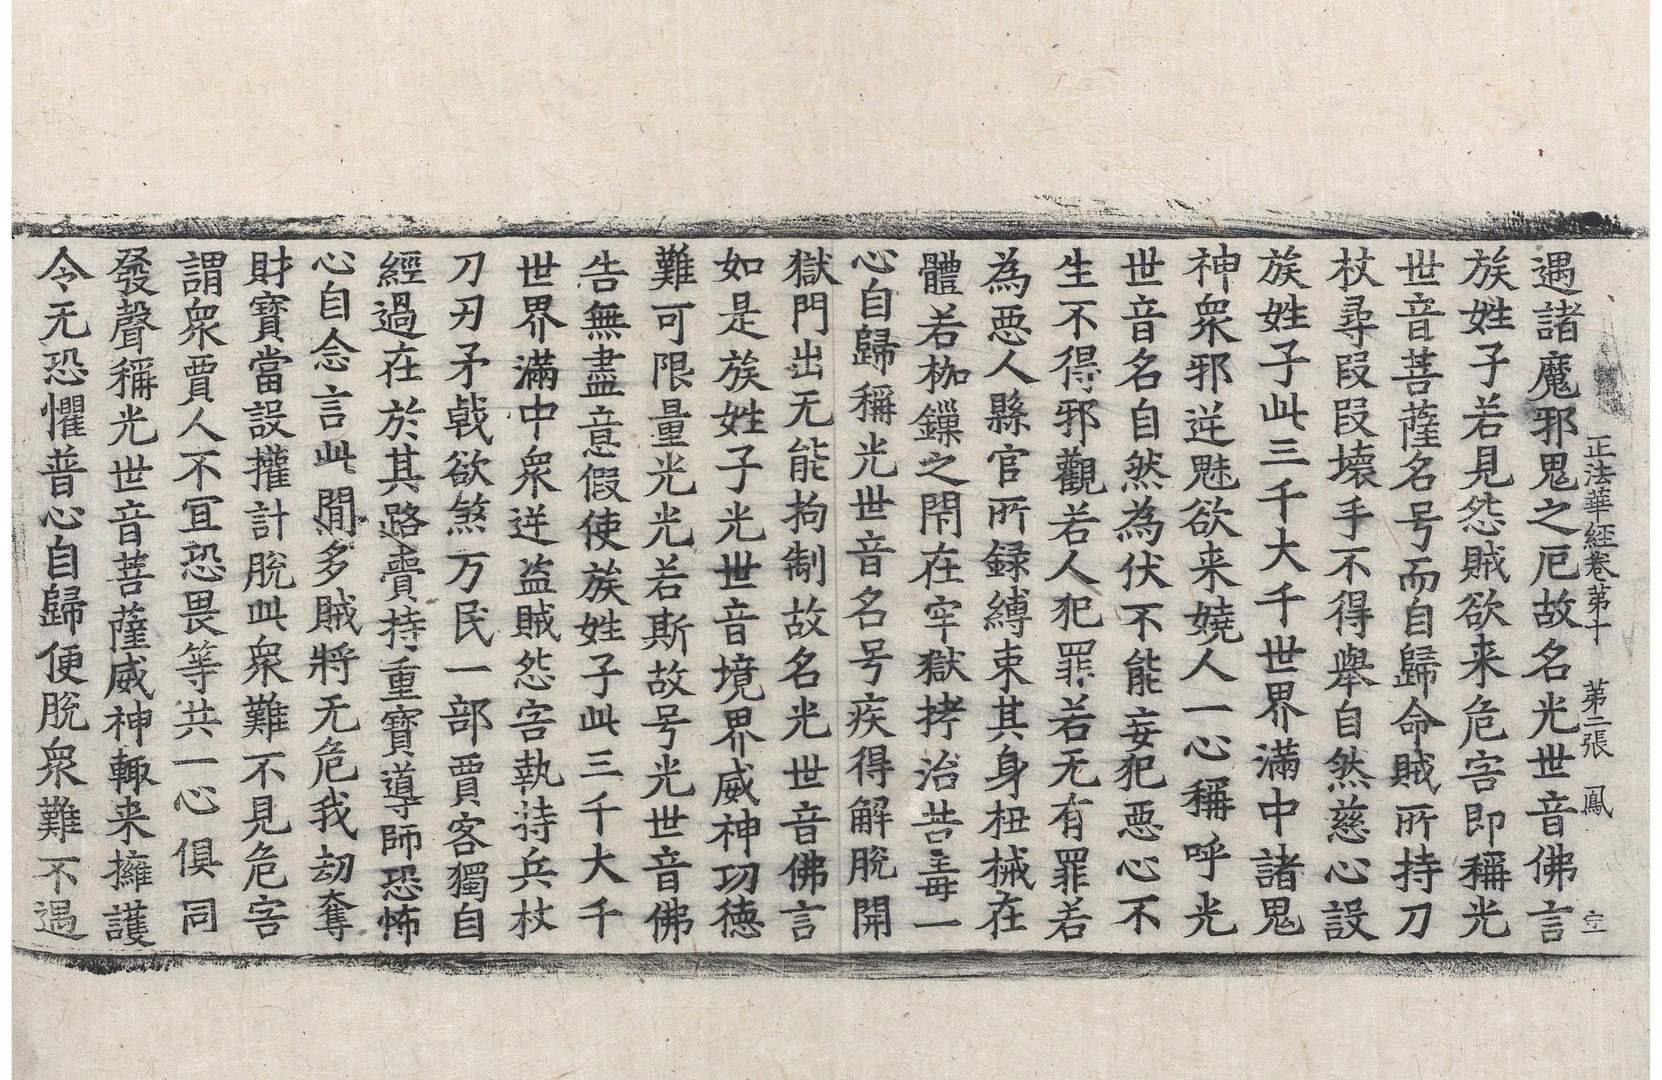 正法華經卷第十 第二張 鳳
遇諸魔邪鬼之厄故名光世音佛言
族姓子若見怨賊欲来危害即稱光
世音菩薩名号而自歸命賊所持刀
杖尋叚叚壊手不得舉自然慈心設
族姓子此三千大千世界滿中諸鬼
神衆邪逆魅欲来嬈人一心稱呼光
世音名自然為伏不能妄犯惡心不
生不得邪觀若人犯罪若无有罪若
為惡人縣官所録縛束其身杻械在
體若枷鏁之閇在牢獄拷治苦毒一
心自歸稱光世音名号疾得解脫開
獄門出无能拘制故名光世音佛言
如是族姓子光世音境界威神功德
難可限量光光若斯故号光世音佛
告無盡意假使族姓子此三千大千
世界滿中衆逆盗賊怨害執持兵杖
刀刃矛戟欲煞万民一部賈客獨自
經過在於其路賷持重寶導師恐怖
心自念言此間多賊將无危我劫奪
財寶當設㩲計脫此衆難不見危害
謂衆賈人不冝恐畏等共一心俱同
發聲稱光世音菩薩威神輙来擁護
令无恐懼普心自歸便脫衆難不遇